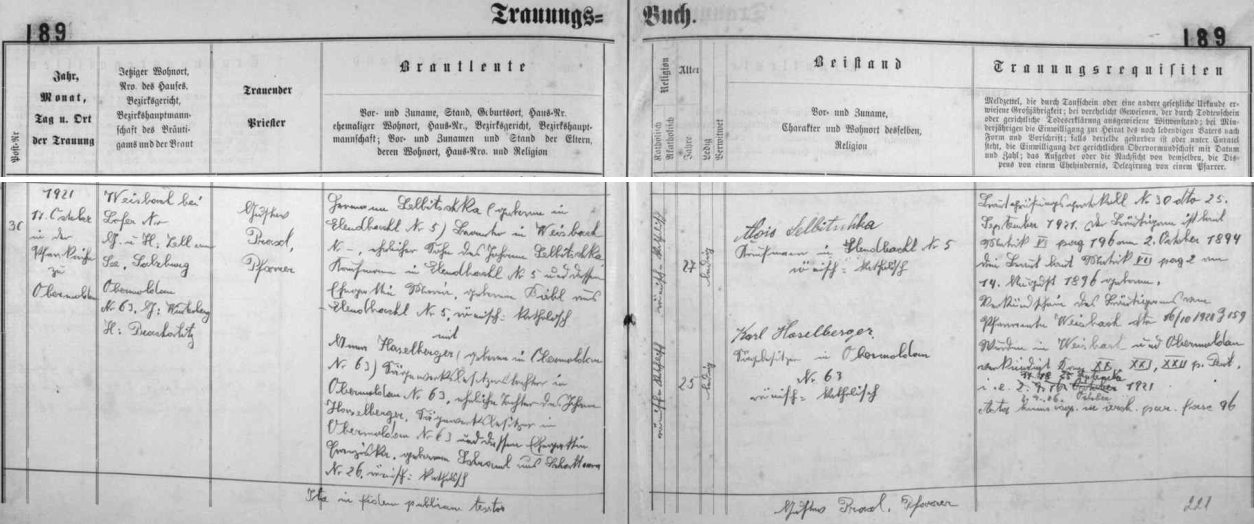 Trauungs=
Buch.
189
189
Post-Nr
Jahr,
Monat,
Tag u. Ort
der Trauung
Jetziger Wohnort,
Nro. des Hauses,
Bezirksgericht,
Bezirkshauptmann-
schaft des Bräuti-
gams und der Braut
Trauender
Priester
Brautleute
Vor- und Zuname, Stand, Geburtsort, Haus-Nr.
ehemaliger Wohnort, Haus-Nr., Bezirksgericht, Bezirkshaupt-
mannschaft; Vor- und Zunamen und Stand der Eltern,
deren Wohnort, Haus-Nro. und Religion
Religion
Katholisch
Akatholisch
Alter
Jahre
Ledig
Verwitwet
Beistand
Vor- und Zuname,
Charakter und Wohnort desselben,
Religion
Trauungsrequisiten
Meldzettel, die durch Taufschein oder eine andere gesetzliche Urkunde er-
wiesene Großjährigkeit; bei verehelicht Gewesenen, der durch Todtenschein
oder gerichtliche Todeserklärung ausgewiesene Witwenstand; bei Min-
derjährigen die Einwilligung zur Heirat des noch lebendigen Vaters nach
Form und Vorschrift; falls derselbe gestorben ist oder unter Curatel
steht, die Einwilligung der gerichtlichen Obervormundschaft mit Datum
und Zahl; das Aufgebot oder die Nachsicht von demselben, die Dis-
pens von einem Ehehindernis, Delegirung von einem Pfarrer.
1921
in der
Pfarrkirche
zu
Obermoldau
Weisbach bei
Lofer Nr
G. u. H. Zell am
See, Salzburg
Obermoldau
N. 63, G: Winterberg
H: Prachatitz
Gustav
Pfarrer
Hermann Selbitschka (geboren in
Elendbachl N. 5) Beamter in Weisbach
N –, ehelicher Sohn des Johann Selbitschka
Kaufmann in Elendbachl N. 5 und dessen
Ehegattin Maria, geborenen
Elendbachl N. 5, römisch: katholisch
mit
Haselberger, (geboren in Obermoldau
N. 63) Sägewerksbesitzerstochter in
Obermoldau N. 63, eheliche Tochter des Johann
Haselberger, Sägewerksbesitzer in
Obermoldau N. 63 und dessen Ehegattin
Franziska, geborenen
N. 26, römisch: katholisch
27
ledig
25
ledig
Alois Selbitschka
Kaufmann in Elendbachl N. 5
römisch: katholisch
Karl Haselberger
Sägebesitzer in Obermoldau
N. 63
römisch: katholisch
Brautprüfungsprotokoll N. 30 dto 25.
September 1921. Der Bräutigam ist laut
Matrik VI pag 196 am 2. October 1894
die Braut laut Matrik VII pag 2 am
14. August 1896 geboren.
Verkündschein des Bräutigams vom
Pfarramte Weisbach dto 16/10 1921
Wurden in Weisbach und Obermoldau
verkündigt XX, XXI, XXII p. Pent.
i. e. 1921
Ita in fidem publicam testor
Gustav Pfarrer
221